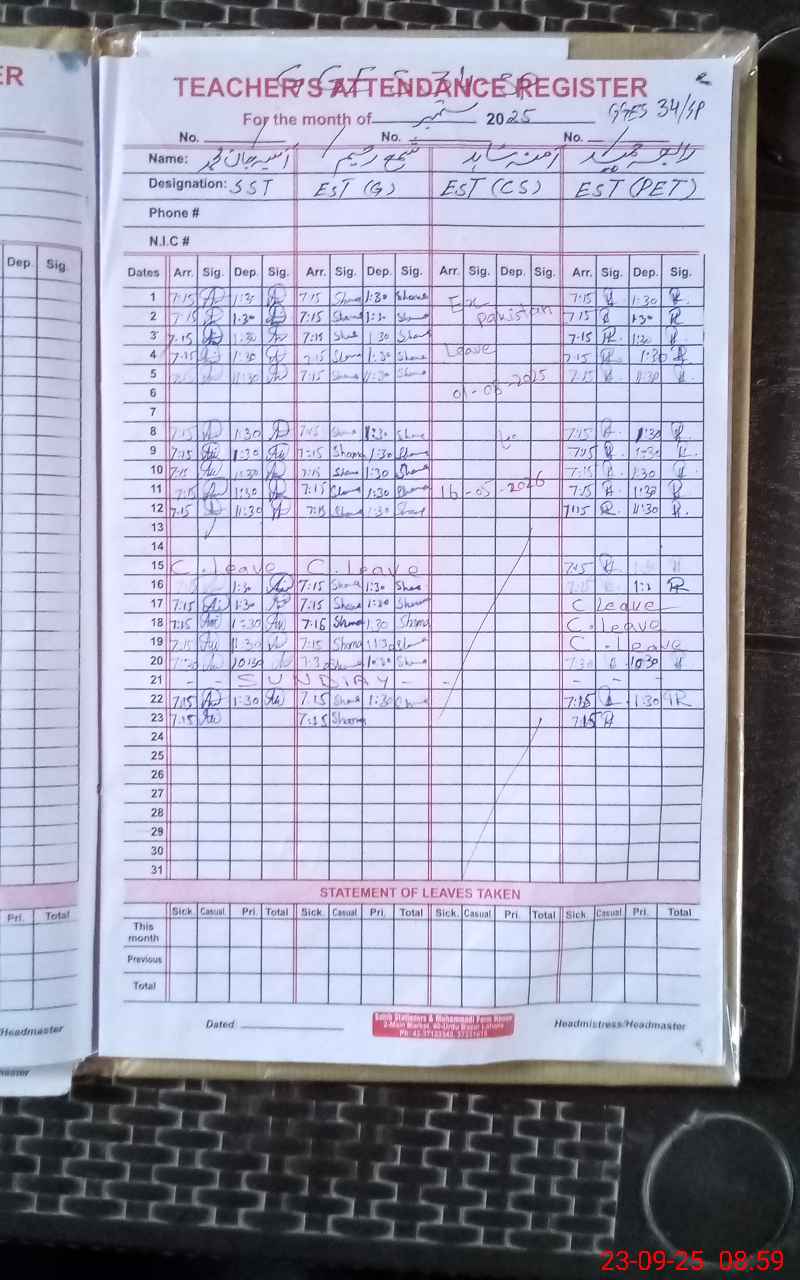 ER
G G E S 34 SP
TEACHER'S ATTENDANCE REGISTER
For the month of ستمبر 2025 GGES 34/SP
No. No. No.
Name: آسیہ جان محمد شمع رحیم آمنہ شاہد رابعہ
Designation: SST EST (G) EST (CS) EST (PET)
Phone #
N.I.C #
Dep. Sig.
Dates Arr. Sig. Dep. Sig. Arr. Sig. Dep. Sig. Arr. Sig. Dep. Sig. Arr. Sig. Dep. Sig.
1 7:15 1:30 7:15 Shama 1:30 Shama Ex 7:15 R. 1:30 R.
2 7:15 1:30 7:15 Shama 1:30 Shama Pakistan 7:15 R 1:30 R
3 7:15 1:30 7:15 Shama 1:30 Shama 7:15 R. 1:30 R.
4 7:15 1:30 7:15 Shama 1:30 Shama Leave 7:15 R. 1:30 R.
5 7:15 11:30 7:15 Shama 11:30 Shama 7:15 R. 11:30 R.
6 01-08-2025
7
8 7:15 1:30 7:15 Shama 1:30 Shama to 7:15 R. 1:30 R.
9 7:15 1:30 7:15 Shama 1:30 Shama 7:15 R. 1:30 R.
10 7:15 1:30 7:15 Shama 1:30 Shama 7:15 R. 1:30 R.
11 7:15 1:30 7:15 Shama 1:30 Shama 16-05-2026 7:15 R. 1:30 R.
12 7:15 11:30 7:15 Shama 1:30 Shama 7:15 R. 11:30 R.
13
14
15 C. Leave C. Leave 7:15 R
16 1:30 7:15 Shama 1:30 Shama 7:15 R. R
17 7:15 1:30 7:15 Shama 1:30 Shama C Leave
18 7:15 1:30 7:15 Shama 1:30 Shama C. Leave
19 7:15 11:30 7:15 Shama 11:30 Shama C. Leave
20 7:30 10:30 7:30 Shama 10:30 Shama 7:30 R 10:30 R
21 - - SUNDAY - - - - - -
22 7:15 1:30 7:15 Shama 1:30 Shama 7:15 R 1:30 R
23 7:15 7:15 Shama 7:15 R
24
25
26
27
28
29
30
31
STATEMENT OF LEAVES TAKEN
Pri. Total
Sick. Casual. Pri. Total Sick. Casual. Pri. Total Sick. Casual Pri. Total Sick. Casual Pri. Total
This month
Previous
Total
Headmaster
Dated
Main Market, 40-Urdu Bazar Lahore
Headmistress/Headmaster
23-09-25 08:59